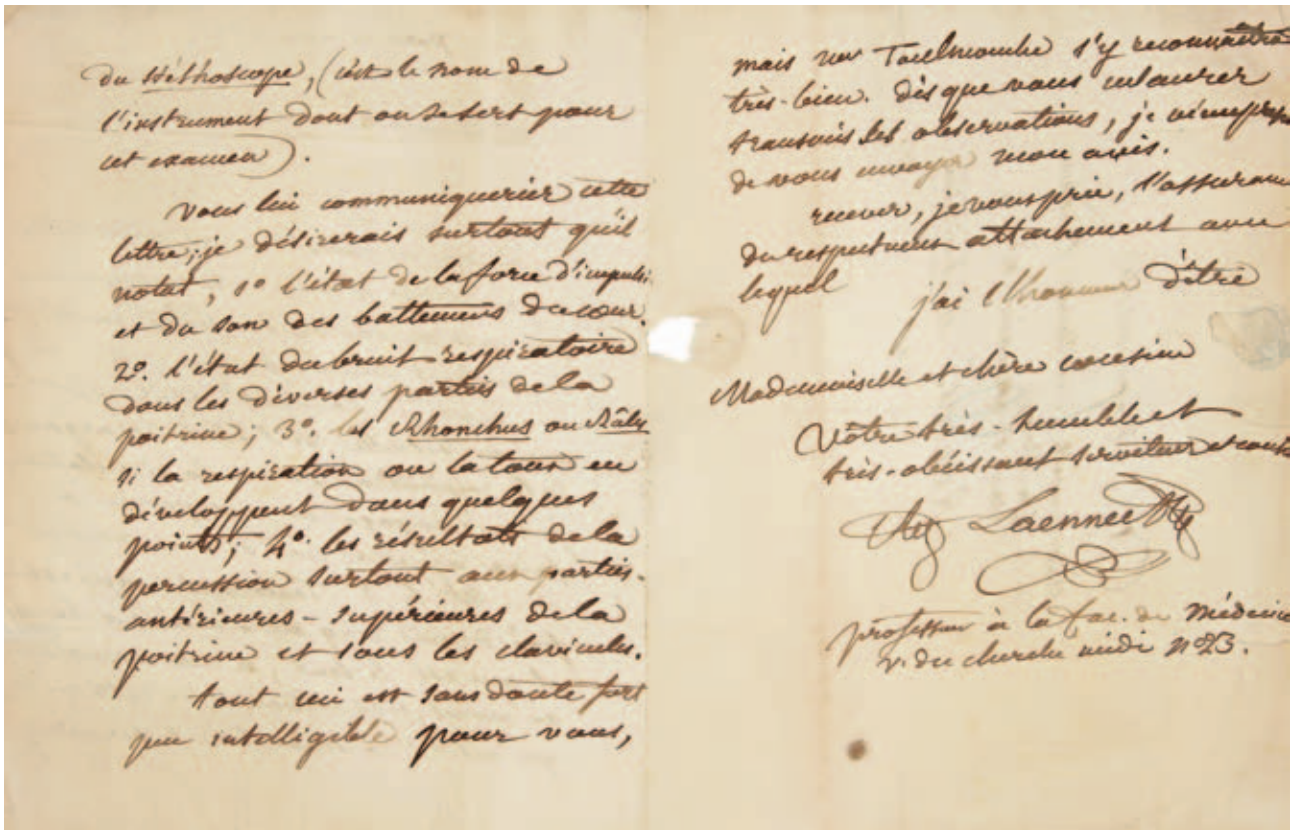 du Stéthoscope, (c'est le nom de
l'instrument dont on se sert pour
cet examen).
Vous lui communiquerier cette
lettre; je désirerais surtout qu'il
notat, 1º l'état de la force d'impulsi
et du son des battements du cœur.
2º. l'état du bruit respiratoire
dans les diverses parties de la
poitrine; 3º. les Rhonchus ou Râles
si la respiration ou la toux en
développent dans quelques
points; 4º. les résultats de la
percussion surtout aux parties-
antérieures-supérieures de la
poitrine et sous les clavicules.
tout ceci est sans doute fort
peu intelligible pour vous,
mais Toulmouche s'y reconnaitra
très-bien. dès que vous m'aurer
transmis ses observations, je m'empress
de vous envoyer mon avis.
recever, je vous prie, l'assurance
du respectueux attachement avec
lequel j'ai l'honneur d'être
Mademoiselle et chère cousine
Votre très-humble et
très-obéissant serviteur et cousin
Laennec
professeur à la fac. de Médecine
r. du cherche midi nº23.